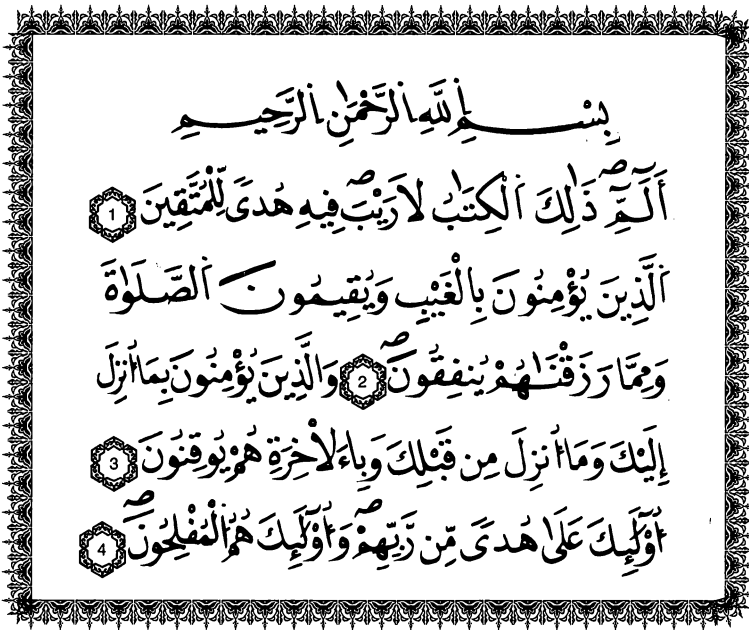 بِسْمِ اِ۬للَّهِ اِ۬لرَّحْمَٰنِ اِ۬لرَّحِيمِ
أَلَٓمِّٓۖ ذَٰلِكَ اَ۬لْكِتَٰبُ لَا رَيْبَۖ فِيهِ هُدىٗ لِّلْمُتَّقِينَ 1
اَ۬لَّذِينَ يُؤْمِنُونَ بِالْغَيْبِ وَيُقِيمُونَ اَ۬لصَّلَوٰةَ
وَمِمَّا رَزَقْنَٰهُمْ يُنفِقُونَۖ 2 وَالَّذِينَ يُؤْمِنُونَ بِمَا أُنزِلَ
إِلَيْكَ وَمَا أُنزِلَ مِن قَبْلِكَ وَبِالَاخِرَةِ هُمْ يُوقِنُونَ 3
أُوْلَٰٓئِكَ عَلَىٰ هُدىٗ مِّن رَّبِّهِمْۖ وَأُوْلَٰٓئِكَ هُمُ اُ۬لْمُفْلِحُونَۖ 4